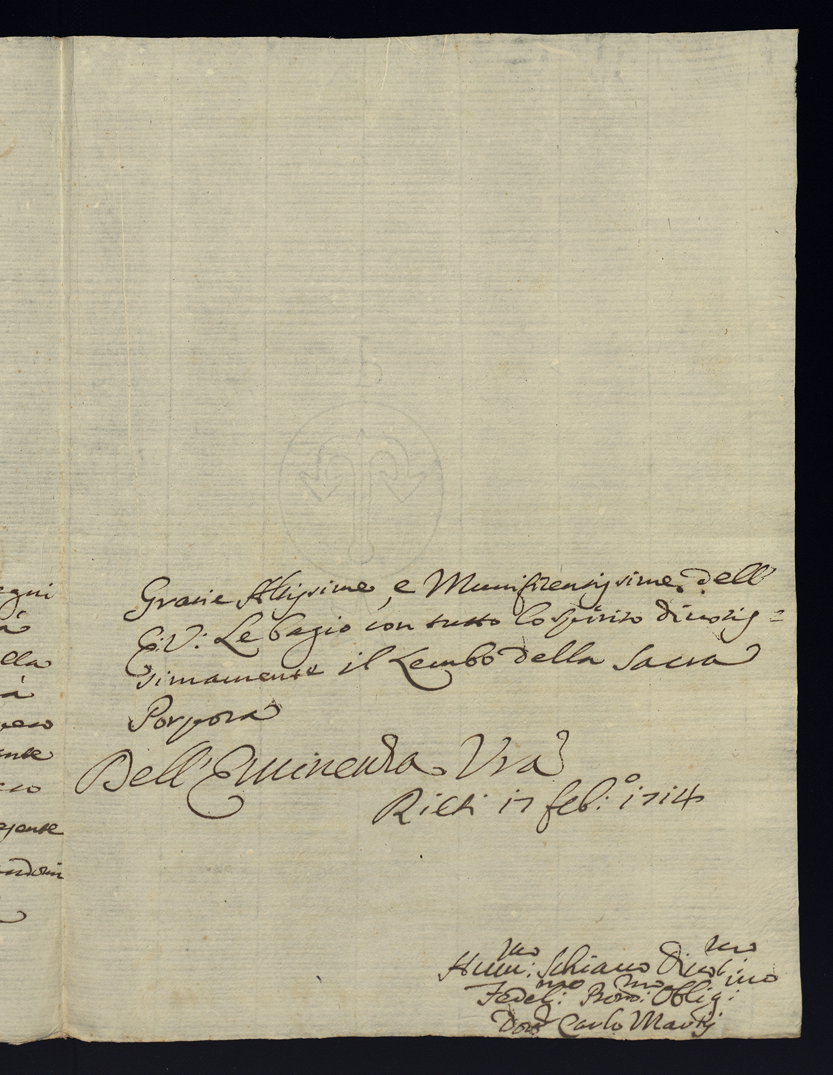 Grazie Altissime, e Munificensissime dell'
E: V: Le bagio con tutto lo spirito diuotis=
simamente il Lembo della Sacra
Porpora
Dell'Eminenza Vra
Rieti 17 feb:o 1714
Hum:mo Schiauo Diuot:mo
Fedel:mo Oblig:mo
Carlo
egni
à
ella
à
ente